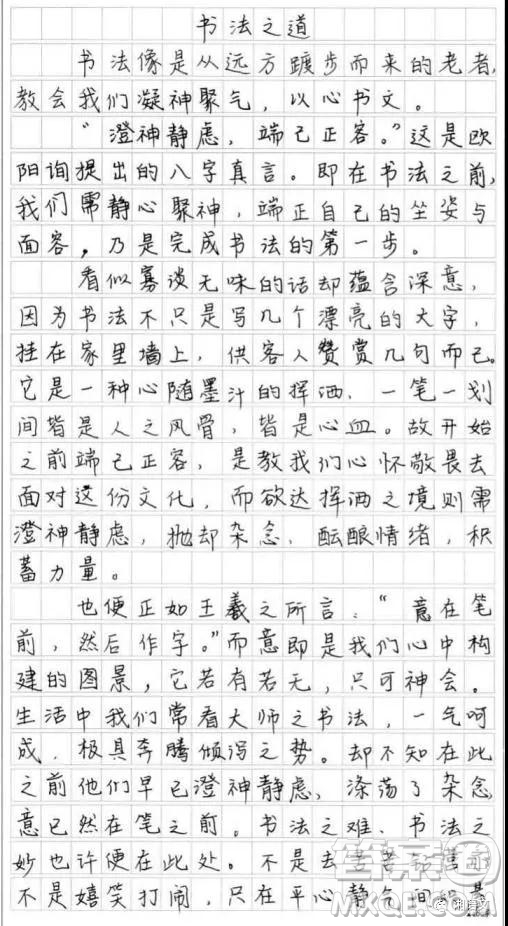 书法之道
书法像是从远方踱步而来的老者,
教会我们凝神聚气，以心书文。
“澄神静虑，端己正容。”这是欧
阳询提出的八字真言。即在书法之前,
我们需静心聚神，端正自己的坐姿与
面容，乃是完成书法的第一步。
看似寡谈无味的话却蕴含深意，
因为书法不只是写几个漂亮的大字，
挂在家里墙上，供客人赞赏几句而已。
它是一种心随墨汁的挥洒，一笔一划
间皆是人之风骨，皆是心血。故开始
之前端己正容，是教我们心怀敬畏去
面对这份文化，而欲达挥洒之境则需
澄神静虑，抛却杂念，酝酿情绪，积
蓄力量。
也便正如王羲之所言：“意在笔
前，然后作字。”而意即是我们心中构
建的图景，它若有若无，只可神会。
生活中我们常看大师之书法，一气呵
成，极具奔腾倾泻之势。却不知在此
之前他们早已澄神静虑，涤荡了杂念
意已然在笔之前。书法之难、书法之
妙也许便在此处。不是去
不是嬉笑打闹，只在平心静气间